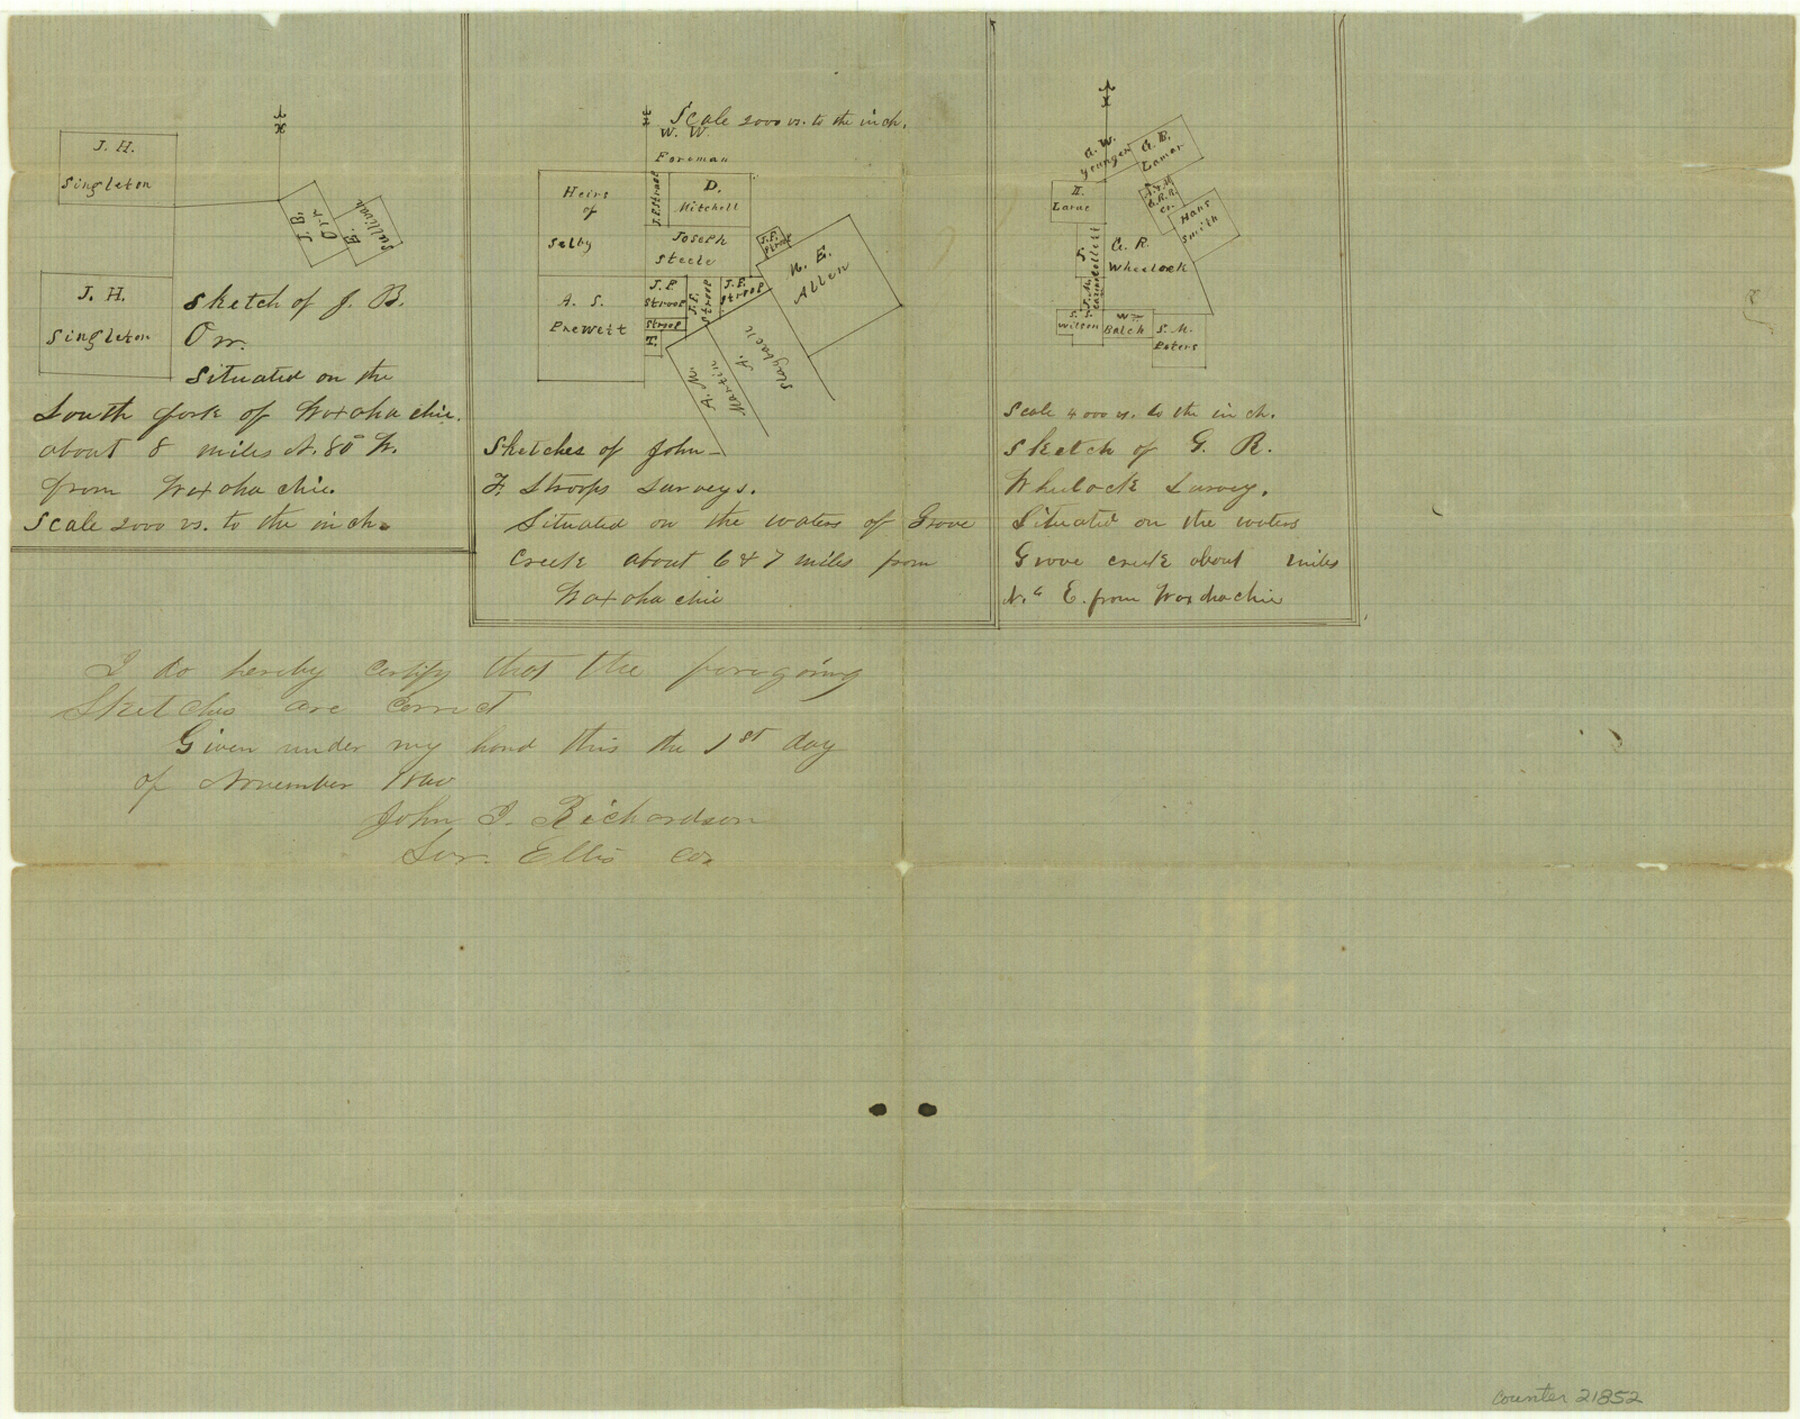 J. H.
Singleton
J. B.
Orr
E.
Sullivan
J. H.
Singleton
Sketch of J. B.
Orr.
Situated on the
South fork of Waxahachie.
about 8 miles N. 80 W.
from Waxahachie.
Scale 2000 vs. to the inch.
Scale 2000 vs. to the inch.
W. W.
Foreman
Heirs
of
Selby
J.F. Stroop
D.
Mitchell
Joseph
Steele
J.F.
Stroop
R. E.
Allen
A. S.
Prewett
J. F
Stroop
J.F.
Stroop
J.F.
Stroop
Stroop
F.
A. M.
Martin
A.
Slayback
Sketches of John
F. Stroops Surveys.
Situated on the waters of Grove
Creek about 6 & 7 miles from
Waxahachie
G. W.
Younger
G. B.
Lamar
H.
Larne
B.R.R.
Co.
Hans
Smith
S.
G. R.
Wheelock
J. M.
S. S.
Wilson
Wm
Balch
S. M.
Peters
Scale 4000 vs. to the inch.
Sketch of G. R.
Wheelock Survey.
Situated on the waters
Grove creek about miles
N. " E. from Waxahachie
I do hereby certify that the foregoing
Sketches are correct
Given under my hand this the 1st day
of November 1860
John I. Richardson
Sur. Ellis Co.
counter 21852